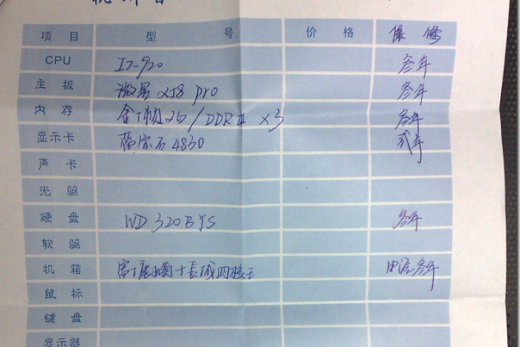 项目 型号 价格 保修
CPU I7-920 叁年
主板 微星X58 pro 叁年
内存 金士顿2G/DDRⅢ ×3 叁年
显示卡 蓝宝石4830 贰年
声卡
光驱
硬盘 WD 320BYS 叁年
软驱
机箱 长城四核王 电源叁年
鼠标
键盘
显示器